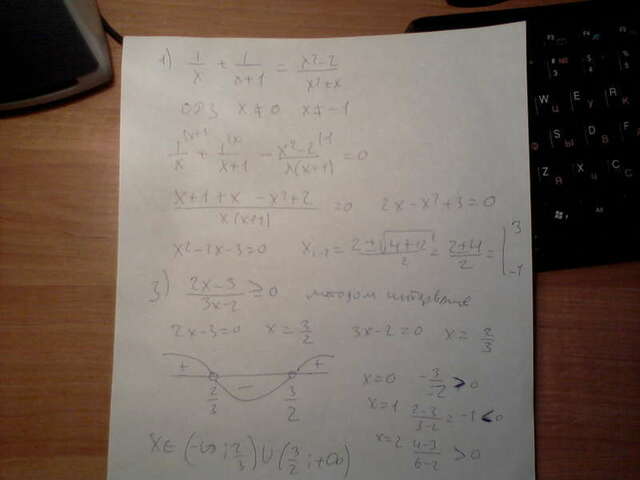 1) 1/x + 1/(x+1) = (x²-2)/(x²+x)
ОДЗ x≠0 x≠-1
1/x + 1/(x+1) - (x²-2)/(x(x+1)) = 0
(x+1+x-x²+2)/(x(x+1)) = 0 2x-x²+3=0
x²-2x-3=0 x₁,₂ = (2±√(4+12))/2 = (2±4)/2 = [3 -1
3) (2x-3)/(3x-2) ≥ 0 методом интервалов
2x-3=0 x=3/2 3x-2=0 x=2/3
+ - +
2/3 3/2
x=0 -3/-2 > 0
x=1 (2-3)/(3-2) = -1 < 0
x=2 (4-3)/(6-2) > 0
x∈(-∞; 2/3)∪(3/2; +∞)
W Ц
E У
R К
S Ы
D В
F А
Z Я
X Ч
C С
Alt